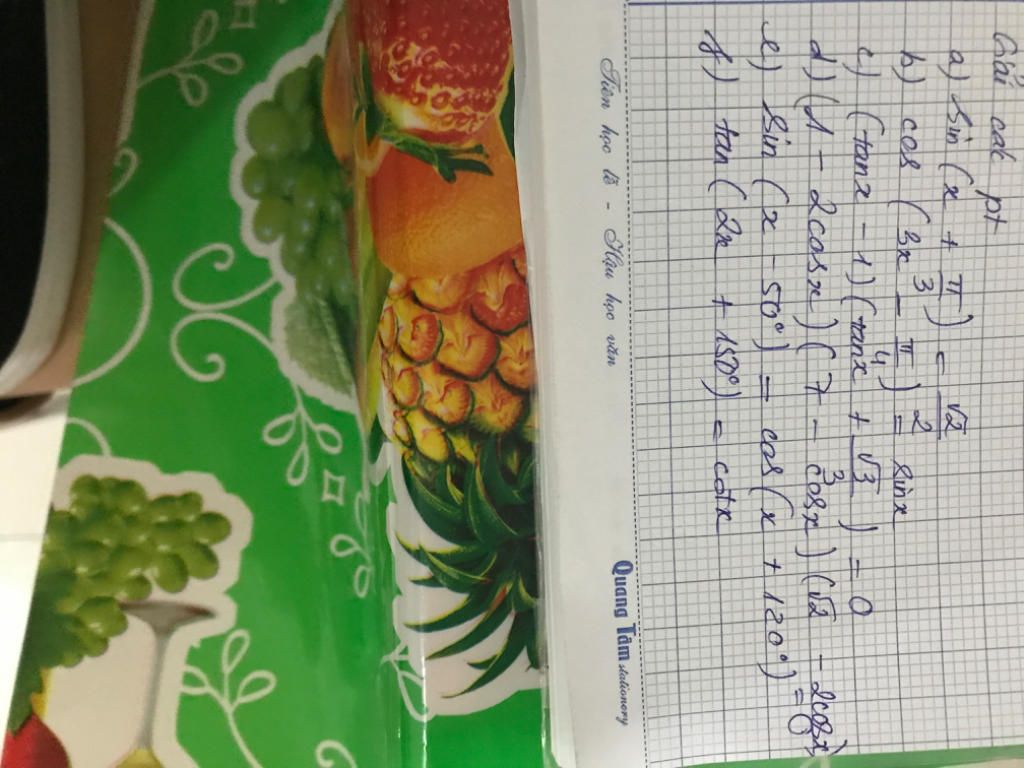 Giải các pt
a) sin (x + π/3) = √2/2
b) cos (3x - π/4) = sinx
c) (tanx - 1)(tanx + √3/3) = 0
d) (1 - 2cosx)(7 - cosx)(√2 - 2cosx) = 0
e) sin (x - 50°) = cos (x + 120°)
f) tan (2x + 150°) = cotx
Tiên học lễ - Hậu học văn
Quang Tâm stationery